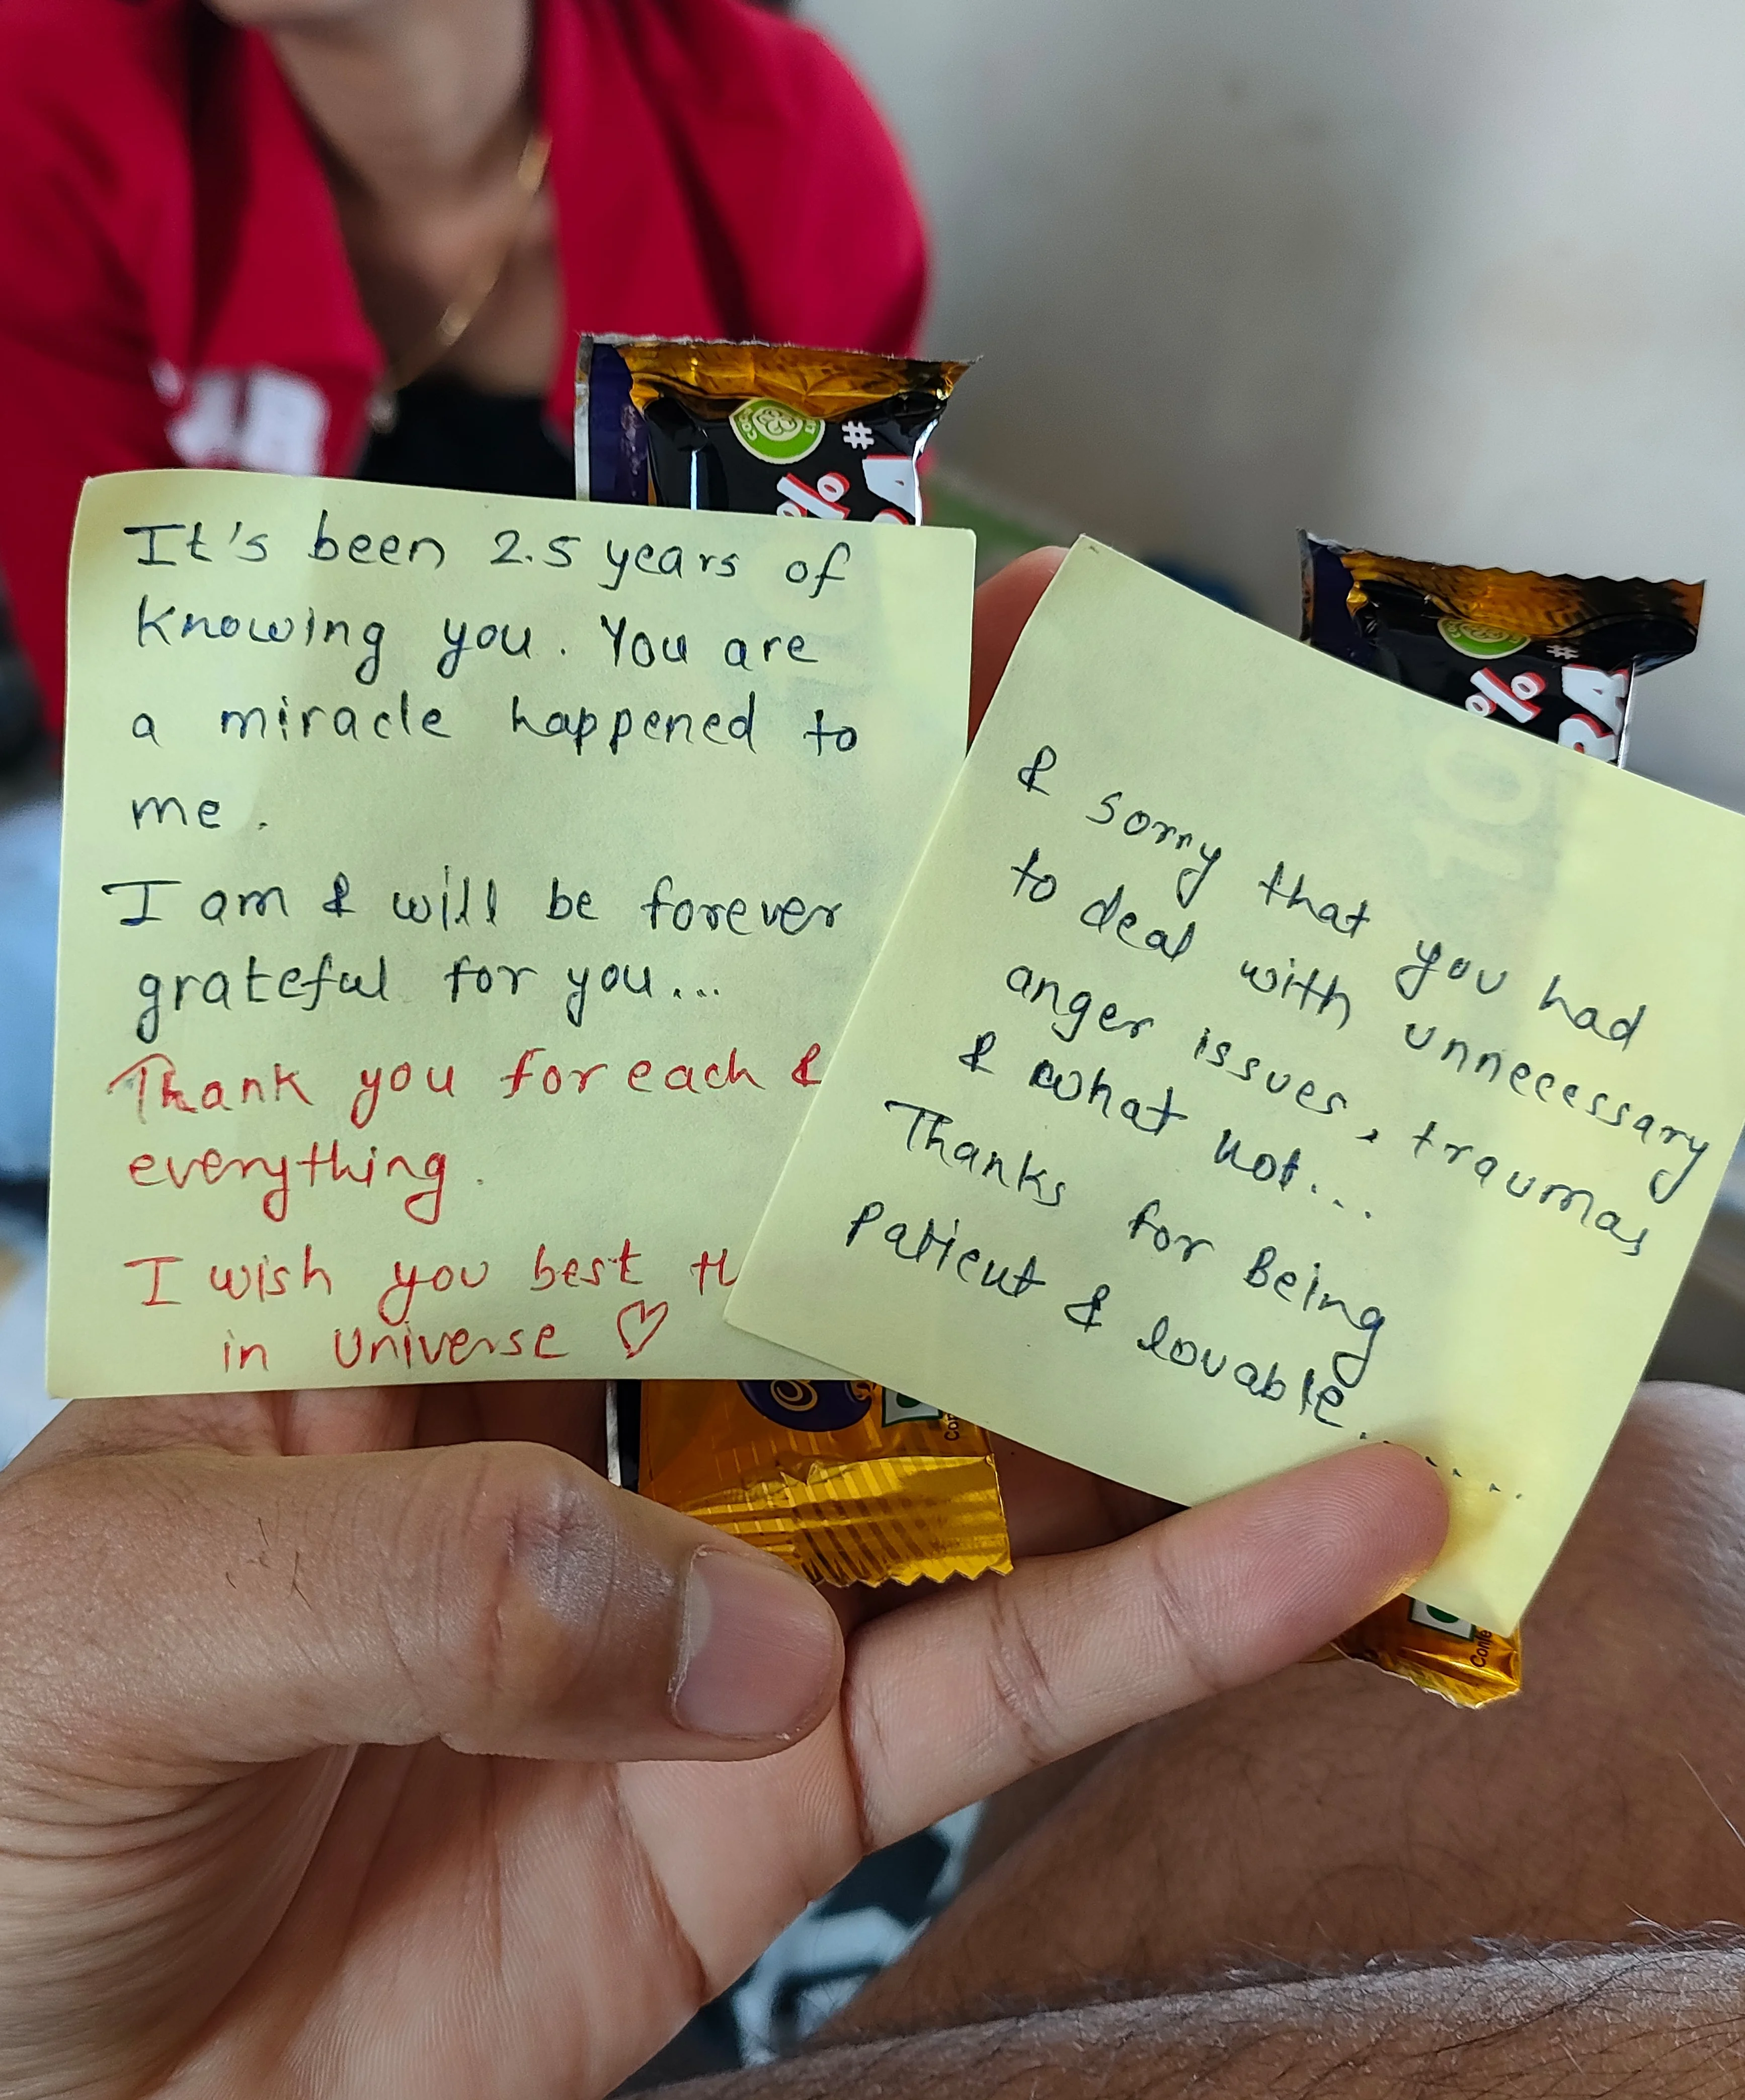 It's been 2.5 years of
Knowing you. You are
a miracle happened to
me.
I am & will be forever
grateful for you...
Thank you for each &
everything.
I wish you best
in universe ♡
& sorry that you had
to deal with unnecessary
anger issues, traumas
& what not...
Thanks for Being
Patient & lovable.....
#
%
#
%
RA
10